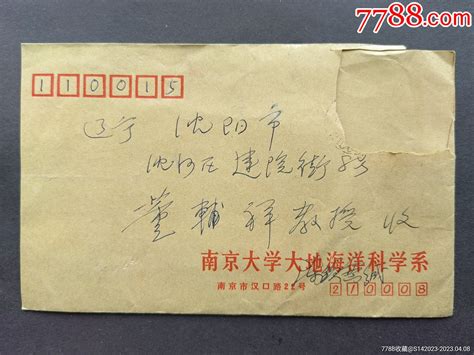 7788.com
110015
辽宁 沈阳市
沈河区 建院街 号
董辅祥教授 收
南京大学大地海洋科学系
南京市汉口路22号
210008
7788收藏@S142023-2023.04.08